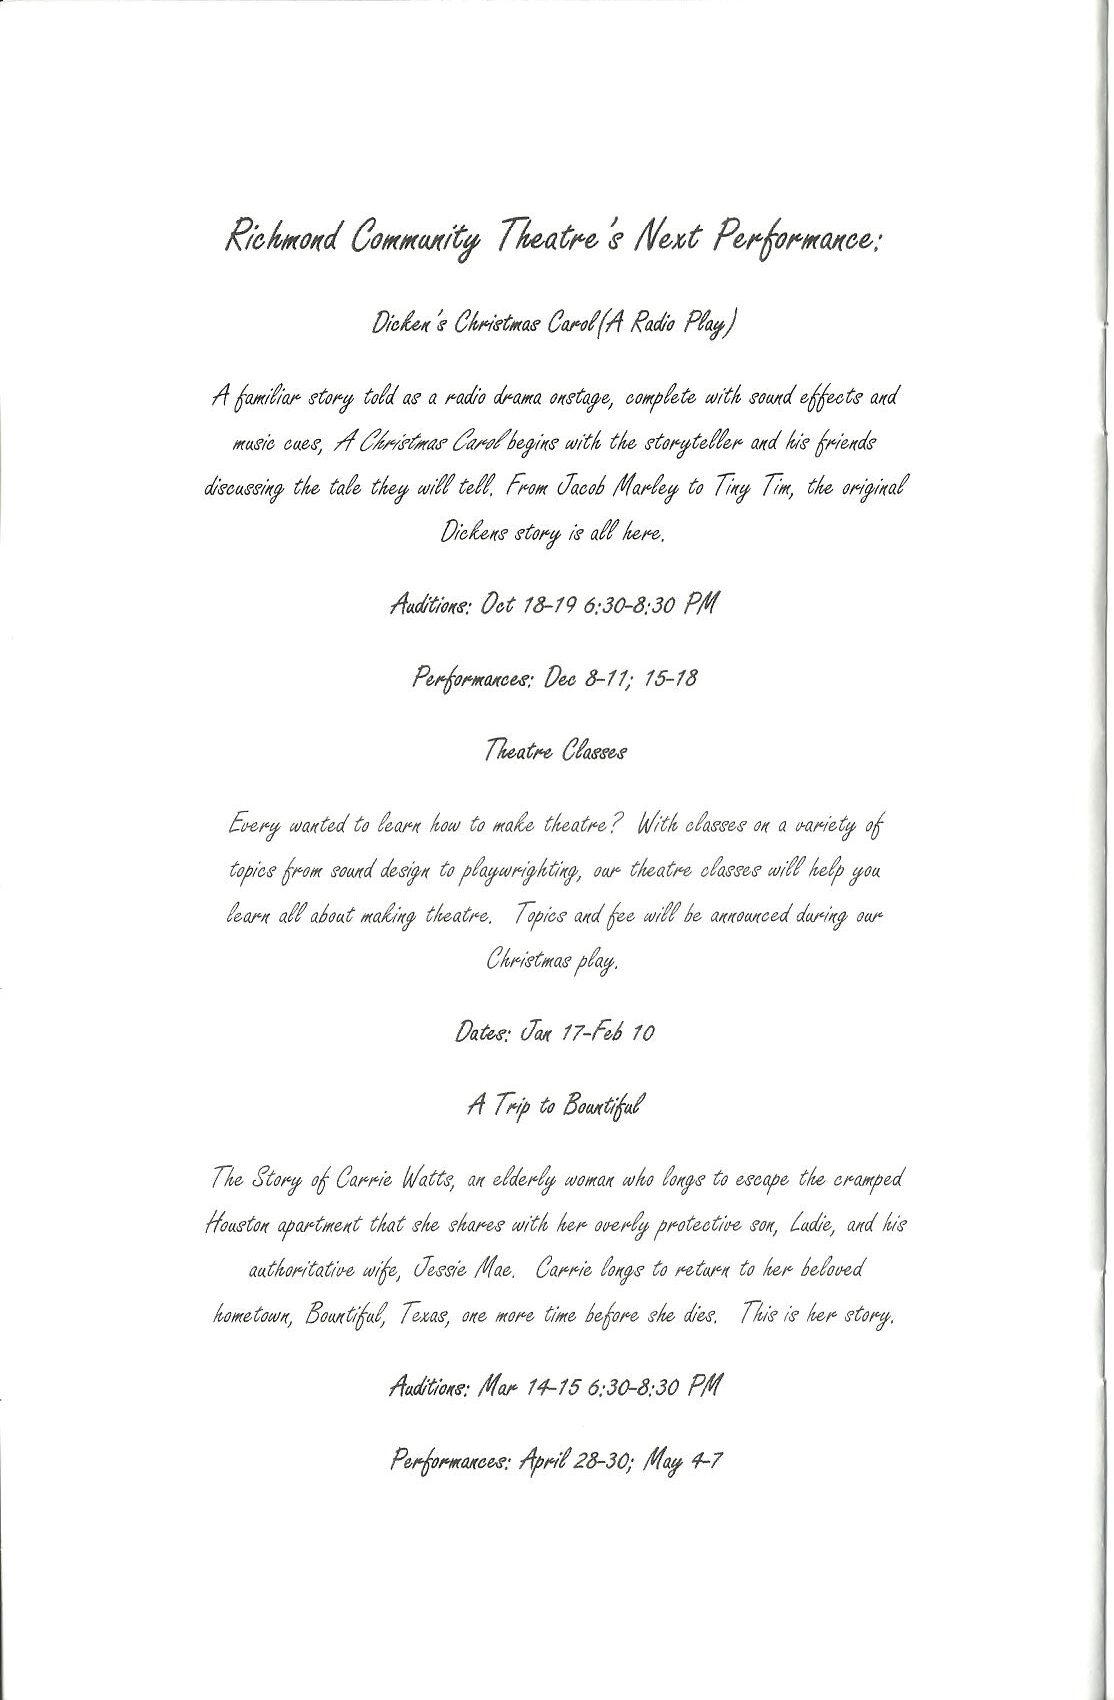 Richmond Community Theatre's Next Performance:
Dicken's Christmas Carol(A Radio Play)
A familiar story told as a radio drama onstage, complete with sound effects and
music cues, A Christmas Carol begins with the storyteller and his friends
discussing the tale they will tell. From Jacob Marley to Tiny Tim, the original
Dickens story is all here.
Auditions: Oct 18-19 6:30-8:30 PM
Performances: Dec 8-11; 15-18
Theatre Classes
Every wanted to learn how to make theatre? With classes on a variety of
topics from sound design to playwrighting, our theatre classes will help you
learn all about making theatre. Topics and fee will be announced during our
Christmas play.
Dates: Jan 17-Feb 10
A Trip to Bountiful
The Story of Carrie Watts, an elderly woman who longs to escape the cramped
Houston apartment that she shares with her overly protective son, Ludie, and his
authoritative wife, Jessie Mae. Carrie longs to return to her beloved
hometown, Bountiful, Texas, one more time before she dies. This is her story.
Auditions: Mar 14-15 6:30-8:30 PM
Performances: April 28-30; May 4-7